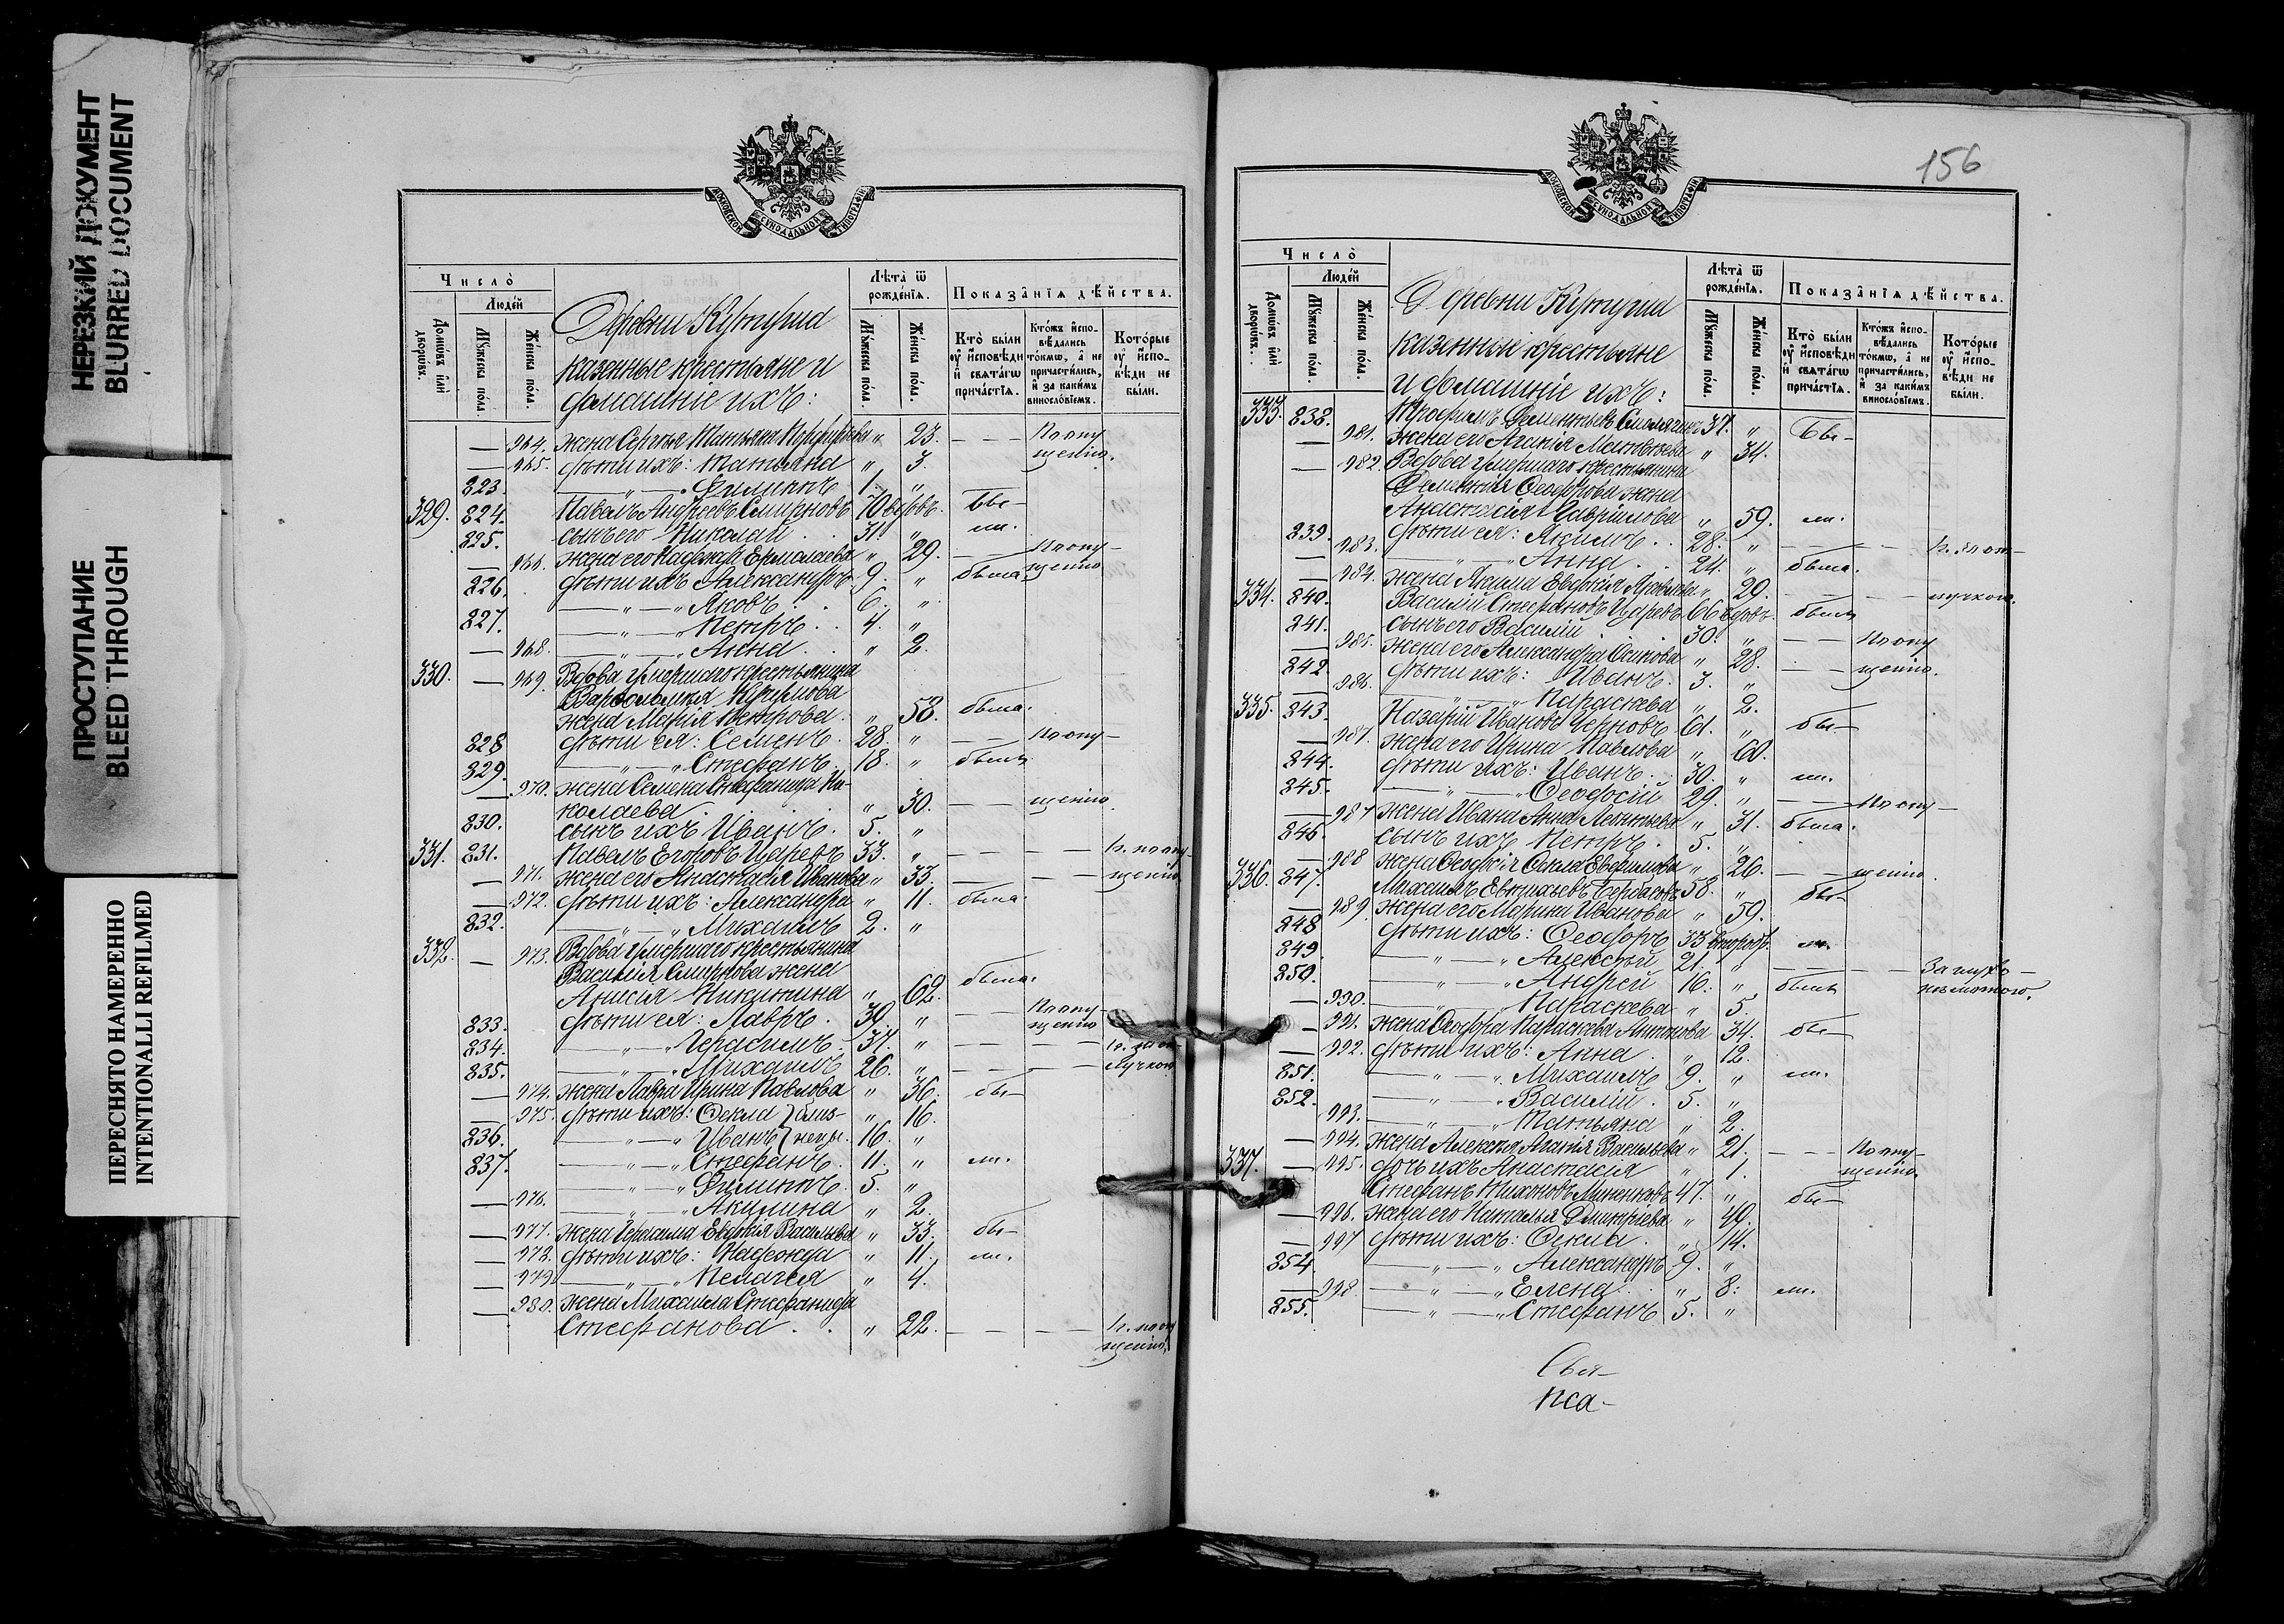 НЕРЕЗКИЙ ДОКУМЕНТ
BLURRED DOCUMENT
ПРОСТУПАНИЕ
BLEED THROUGH
ПЕРЕСНЯТО НАМЕРЕННО
INTENTIONALLI REFILMED
МОСКОВСКОЙ СѴНОДАЛЬНОЙ ТИПОГРАФІИ
Число̀
Людей
Домѡвъ илй дворѡвъ.
Мꙋжеска пола.
Женска пола.
Деревни Кутугина
казенные крестьяне и
домашніе ихъ:
Лѣта̀ ѿ рожденїѧ.
Мꙋжеска пола.
Женска пола.
Показанїѧ дѣйства.
Кто̀ были оу҆ исповѣди и свѧтагѡ причастїѧ.
Ктожъ исповѣдались токмѡ, а не причастились, и за какимъ винословїемъ.
Которые оу҆ исповѣди не были.
— 964. жена Сергѣя Татьяна Порфирьева „ 23. — — По опу
— 965. дѣти ихъ: Татьяна „ 3. щенію.
823. —„—„ Филиппъ 1. „
329. 824. Павелъ Андреевъ Смирновъ 70 вдовъ. бы-
825. сынъ его Николай 31. „ ли.
— 966. жена его Надежда Ермолаева „ 29. — — По опу-
826. дѣти ихъ Александръ 9. „ была. щенію
—„—„ Яковъ 6. „
827. —„—„ Петръ 4. „
— 968. —„—„ Анна „ 2.
330. — 969. Вдова умершаго крестьянина
Варѳоломея
жена Марія Петрова „ 58. была.
828 дѣти ея: Семенъ 28. „ — — По опу-
829. —„—„ Стефанъ 18. „ былъ
— 970. жена Семена Стефанида Ни-
колаева „ 30. — — щенію
830. сынъ ихъ Иванъ. 5. „
331. 831. Павелъ Егоровъ Царевъ 33. „ — — — — н. по опу
— 971. жена его Анастасія Иванова „ 33. — — — щенію.
— 972. дѣти ихъ: Александра „ 11. была.
832. —„—„ Михаилъ 2. „
332. — 973. Вдова умершаго крестьянина
Василія Смирнова жена
Анисія Никитина „ 62. была.
833. дѣти ея: Лавръ 39 „ — По опу-щенію
834. —„—„ Герасимъ 37. „ — — — н. за от-
835. —„—„ Михаилъ 26. „ — — — лучкою
— 974. жена Лавра Ирина Павлова „ 36. бы-
— 975. дѣти ихъ: Ѳекла } близ- „ 16.
836. —„—„ Иванъ } нецы. 16. „
837. —„—„ Стефанъ 11. „ ли.
—„—„ Филиппъ 5. „
— 976. —„—„ Акилина „ 2.
— 977. жена Герасима Евдокія Васильева „ 33. бы-
— 978. дѣти ихъ: Надежда „ 11. ли.
— 979 —„—„ Пелагея „ 4.
— 980. жена Михаила Стефанида
Стефанова „ 22. — — — — н. по опу
щенію.
156
МОСКОВСКОЙ СѴНОДАЛЬНОЙ ТИПОГРАФІИ
Число̀
Людей
Домѡвъ илй дворѡвъ.
Мꙋжеска пола.
Женска пола.
Деревни Кутугина
казенные крестьяне
и домашніе ихъ:
Лѣта̀ ѿ рожденїѧ.
Мꙋжеска пола.
Женска пола.
Показанїѧ дѣйства.
Кто̀ были оу҆ исповѣди и свѧтагѡ причастїѧ.
Ктожъ исповѣдались токмѡ, а не причастились, и за какимъ винословїемъ.
Которые оу҆ исповѣди не были.
333. 838. Трофимъ Дементьевъ 37. „ бы-
— 981. жена его Агапія Матвѣева „ 34.
— 982. Вдова умершаго крестьянина
Дементія Ѳеодорова жена
Анастасія Гавріилова „ 59. ли.
839. дѣти ея: Якимъ 28. „ — — — н. за от-
— 983. —„—„ Анна 24. „ была.
— 984. жена Якима Евдокія Яковлева „ 29. — — — лучкою.
334. 840. Василій Стефановъ Царевъ 66 вдовъ. былъ
841. сынъ его Василій 30. „ — — По опу
— 985. жена его Александра Осипова „ 28. — — щенію.
842. дѣти ихъ: Иванъ 3. „
— 986. —„—„ Параскева „ 2.
335. 843. Назарій Ивановъ Черновъ 61. „ бы-
— 987. жена его Ирина Павлова „ 60.
844. дѣти ихъ: Иванъ 30. „ ли.
845. —„—„ Ѳеодосій 29. „ — — По опу-
— 987 жена Ивана Анна Леонтьева „ 31. была.
846. сынъ ихъ Петръ 5. „
— 988 жена Ѳеодосія Ѳекла Евфимова „ 26. — — щенію.
336. 847. Михаилъ Евтихьевъ 58. „ бы-
— 989. жена его Марина Иванова „ 59.
848 дѣти ихъ: Ѳеодоръ 33 второбр. ли.
849. —„—„ Алексѣй 21. „ — — — — За глухо-
850. —„—„ Андрей 16. „ былъ нѣмотою.
— 990. —„—„ Параскева „ 5.
— 991. жена Ѳеодора Параскева Антонова „ 34. бы-
— 992. дѣти ихъ: Анна „ 12.
851. —„—„ Михаилъ 9. „ ли.
852. —„—„ Василій 5. „
993. —„—„ Татьяна „ 2.
— 994. жена Алексѣя Агапія Васильева „ 21. — — По опу-
337. — 995. дочь ихъ Анастасія „ 1. щенію.
Стефанъ Тихоновъ 47. „ бы-
— 996. жена его Наталья Дмитріева „ 49.
— 997 дѣти ихъ: Ѳекла „ 14.
854 —„—„ Александръ 9. „
— 998. —„—„ Елена „ 8. ли.
855. —„—„ Стефанъ 5. „
Свя-
пса-